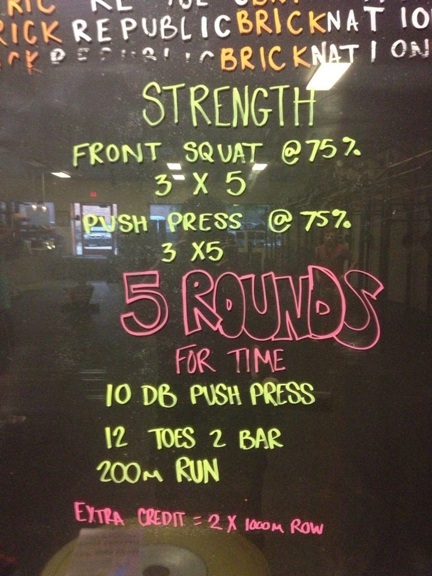 RIC RE
RICK REPUBLIC BRICK NATIO
CK REPUBLIC BRICK NATION
STRENGTH
FRONT SQUAT @ 75%
3 X 5
PUSH PRESS @ 75%
3 X5
5 ROUNDS
FOR TIME
10 DB PUSH PRESS
12 TOES 2 BAR
200m RUN
EXTRA CREDIT = 2 X 1000m ROW